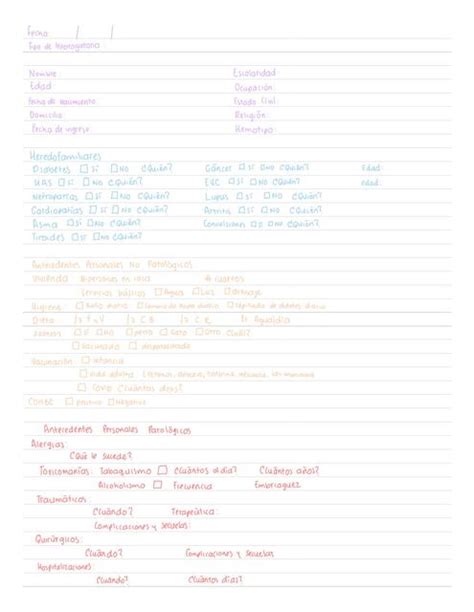 Fecha: / /
Tipo de interrogatorio
Nombre: Escolaridad
Edad Ocupación:
Fecha de nacimiento: Estado Civil:
Domicilio: Religión:
Fecha de ingreso Hemotipo:
Heredofamiliares
Diabetes □ Sí □ No ¿Quién? Cáncer □ Sí □ No ¿Quién? Edad:
HAS □ Sí □ No ¿Quién? EVC □ Sí □ No ¿Quién? Edad:
Nefropatías □ Sí □ No ¿Quién? Lupus □ Sí □ No ¿Quién?
Cardiopatías □ Sí □ No ¿Quién? Artritis □ Sí □ No ¿Quién?
Asma □ Sí □ No ¿Quién? Convulsiones □ Sí □ No ¿Quién?
Tiroides □ Sí □ No ¿Quién?
Antecedentes Personales No Patológicos
Vivienda # personas en casa # cuartos
Servicios básicos □ Agua □ Luz □ drenaje
Higiene □ Baño diario □ Cambio de ropa diario □ Cepillado de dientes diario
Dieta /7 F y V /7 C R /7 C B Agua/día
□ Sí □ No □ perro □ Gato □ Otro ¿Cuál?
□ Vacunado □ desparasitado
Vacunación □ infancia
□ Vida adulta
□ Covid ¿Cuántas dosis?
□ Positivo □ Negativo
Antecedentes Personales Patológicos
Alergias:
¿Qué le sucede?
Toxicomanías: Tabaquismo □ ¿Cuántos al día? ¿Cuántos años?
Alcoholismo □ Frecuencia Embriaguez
Traumáticos:
¿Cuándo? Terapéutica:
Complicaciones y secuelas:
Quirúrgicos:
¿Cuándo? Complicaciones y secuelas
Hospitalizaciones:
¿Cuándo? ¿Cuántos días?